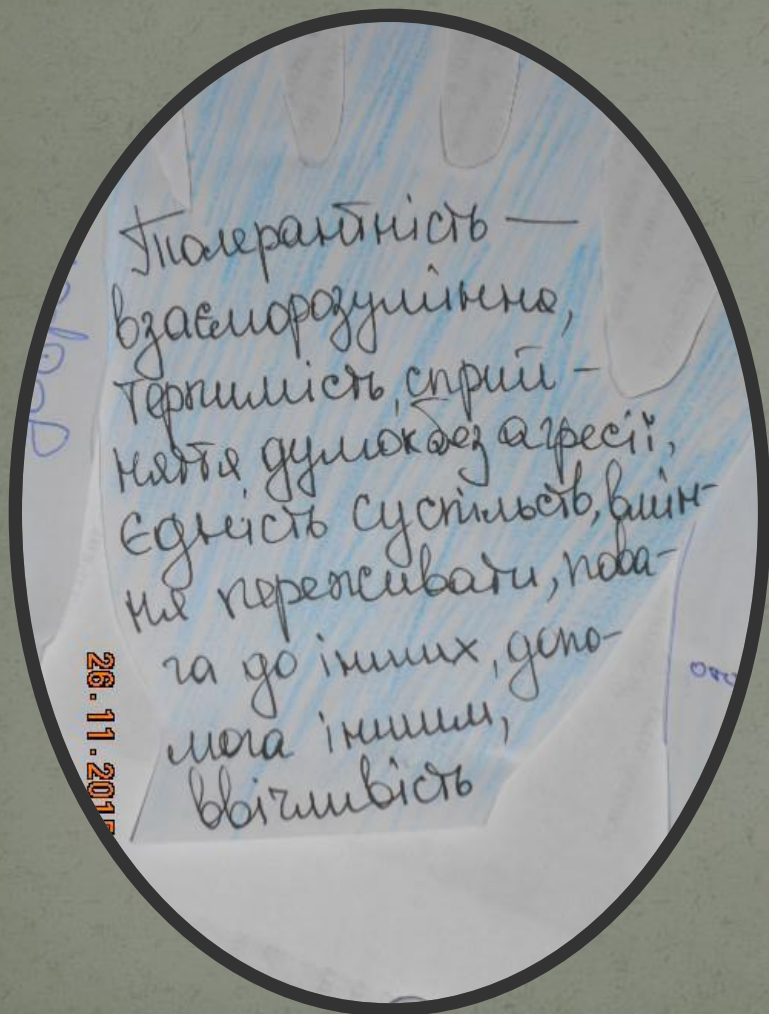 Толерантність —
взаєморозуміння,
терпимість, сприй-
няття думок без агресії,
єдність суспільств, вмін-
ня переживати, пова-
га до інших, допо-
мога іншим,
ввічливість
26.11.201